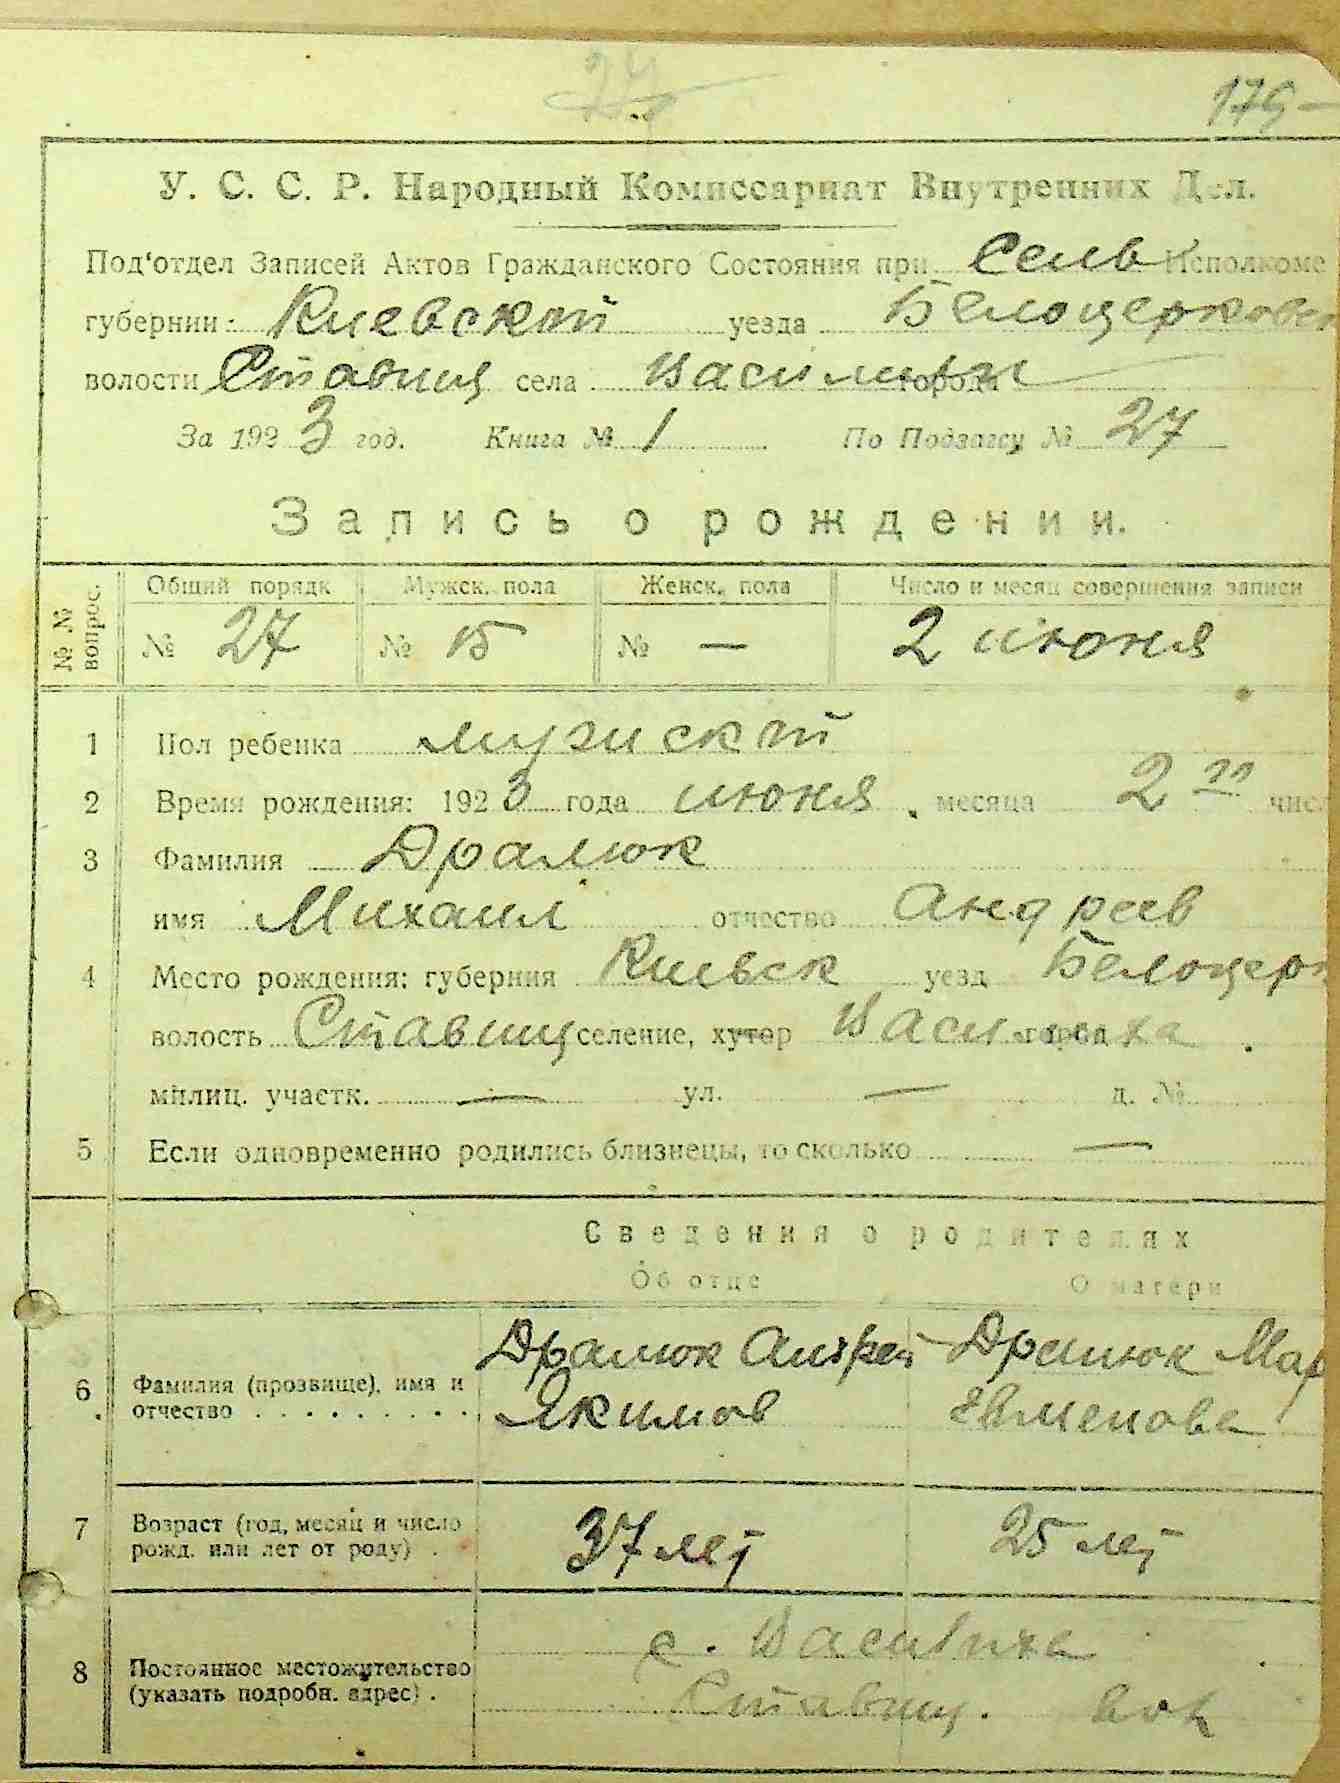 27
175 —
У. С. С. Р. Народный Комиссариат Внутренних Дел.
Под‘отдел Записей Актов Гражданского Состояния при Сель Исполкоме
губернии Киевской уезда Белоцерковск
волости Ставищ села города
За 1923 год. Книга № 1 По Подзагсу № 27
Запись о рождении.
№ № вопрос. Общий порядк Мужск. пола Женск. пола Число и месяц совершения записи
№ 27 № 15 № — 2 июня
1 Пол ребенка мужской
2 Время рождения: 1923 года июня месяца 2 числ
3 Фамилия Дралюк
имя Михаил отчество Андреев
4 Место рождения: губерния Киевск уезд Белоцерк
волость Ставищ селение, хутор Василиха город
милиц. участк. — ул. — д. №
5 Если одновременно родились близнецы, то сколько —
Сведения о родителях
Об отце О матери
6 Фамилия (прозвище), имя и отчество . . . . . . . . . . Дралюк Андрей Якимов Дралюк Мар Евменова
7 Возраст (год, месяц и число рожд. или лет от роду) . 37 лет 25 лет
8 Постоянное местожительство (указать подробн. адрес) . с. Василиха
Ставищ. вол